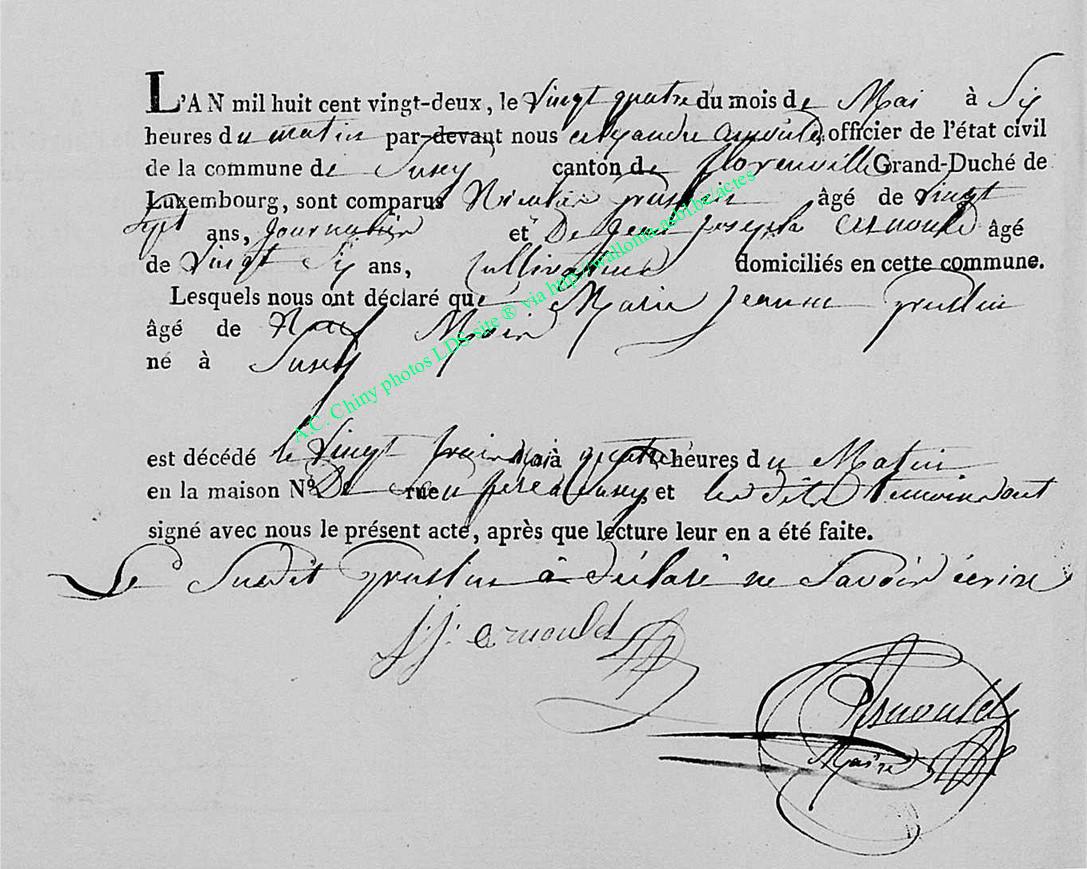 L'AN mil huit cent vingt-deux, le Vingt quatre du mois de Mai à Six
heures du matin par-devant nous alexandre arnould, officier de l'état civil
de la commune de Suxy canton de florenville Grand-Duché de
Luxembourg, sont comparus Nicolas âgé de vingt
Sept ans, Journalier et De Jean Joseph Arnould âgé
de Vingt Six ans, Cultivateur domiciliés en cette commune.
Lesquels nous ont déclaré que Marie Jeanne
âgé de Neuf Mois
né à Suxy
est décédé le Vingt à quatre heures du Matin
en la maison N° De rue Son père a Suxy, et les dits temoins ont
signé avec nous le présent acte, après que lecture leur en a été faite.
Le Sudit à déclaré ne Savoir écrire
J: J: arnould
Arnould
Maire
A.C. Chiny photos LDS site ® via http://wallonia.asbl.be/actes